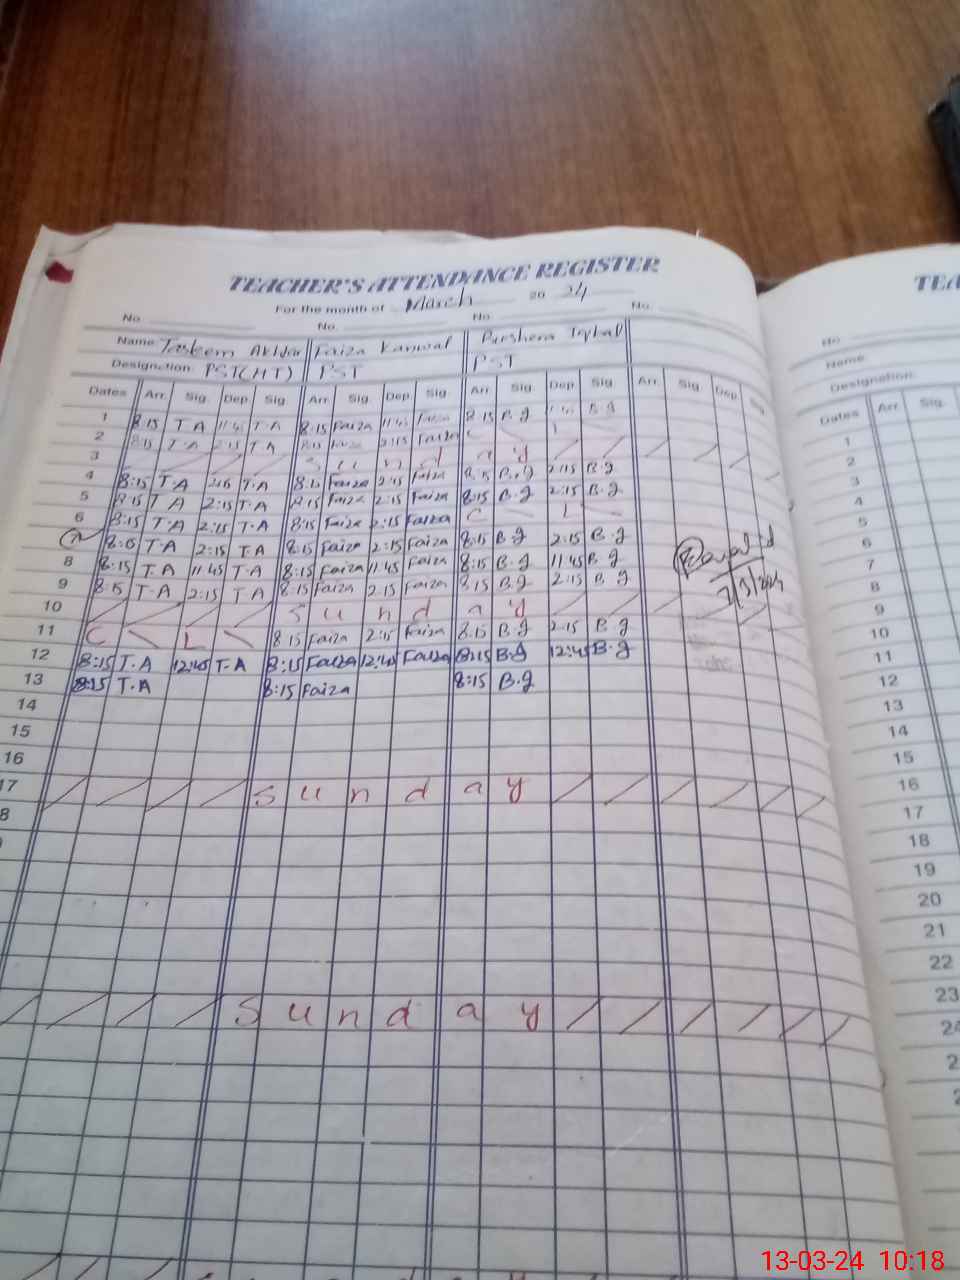 TEACHER'S ATTENDANCE REGISTER
For the month of March 20 24
No. No. No. No.
Name Faiza Kanwal Iqbal
Designation: PST(HT) PST PST
Dates Arr. Sig. Dep. Sig. Arr. Sig. Dep. Sig. Arr. Sig. Dep. Sig. Arr. Sig. Dep. Sig.
1 8:15 T.A 11:45 T.A 8:15 Faiza 11:45 Faiza 8:15 B.g B.g
2 8:15 T.A 2:15 T.A 8:15 Faiza 2:15 Faiza C L
3 S u n d a y
4 8:15 T.A 2:15 T.A 8:15 Faiza 2:15 Faiza 8:15 B.g 2:15 B.g
5 8:15 T.A 2:15 T.A 8:15 Faiza 2:15 Faiza 8:15 B.g 2:15 B.g
6 8:15 T.A 2:15 T.A 8:15 Faiza 2:15 Faiza C L
7 8:15 T.A 2:15 T.A 8:15 Faiza 2:15 Faiza 8:15 B.g 2:15 B.g
8 8:15 T.A 11:45 T.A 8:15 Faiza 11:45 Faiza 8:15 B.g 11:45 B.g
9 8:15 T.A 2:15 T.A 8:15 Faiza 2:15 Faiza 8:15 B.g 2:15 B.g
10 S u n d a y
11 C L 8:15 Faiza 2:15 Faiza 8:15 B.g 2:15 B.g
12 8:15 T.A 12:45 T.A 8:15 Faiza 12:45 Faiza 8:15 B.g 12:45 B.g
13 8:15 T.A 8:15 Faiza 8:15 B.g
14
15
16
17 S u n d a y
8
S u n d a y
TEA
No.
Name:
Designation:
Dates Arr. Sig.
1
2
3
4
5
6
7
8
9
10
11
12
13
14
15
16
17
18
19
20
21
22
23
24
13-03-24 10:18